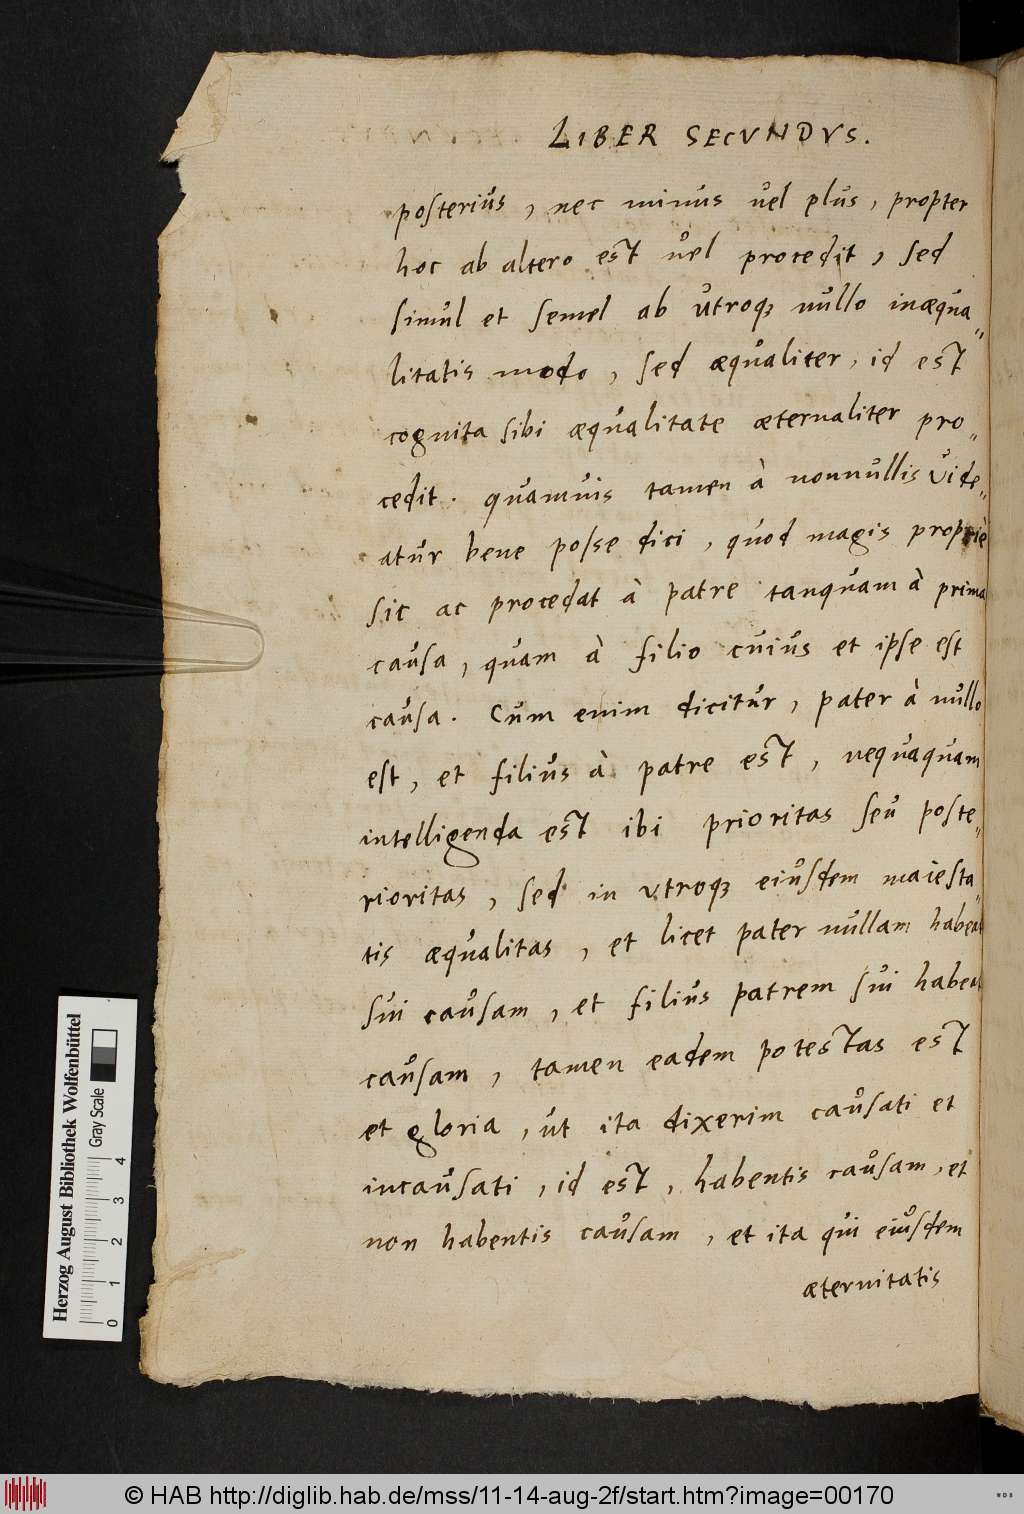 LIBER SECVNDVS.
posterius, nec minus vel plus, propter
hoc ab altero est vel procedit, sed
simul et semel ab vtroq3 nullo inæqua„
litatis modo, sed æqualiter, id est
cognita sibi æqualitate æternaliter pro„
cedit. quamuis tamen à nonnullis vide„
atur bene posse dici, quod magis propriè
sic ac procedat à patre tanquam à prima
causa, quam à filio cuius et ipse est
causa. Cum enim dicitur, pater à nullo
est, et filius à patre est, nequaquam
intelligenda est ibi prioritas seu poste„
rioritas, sed in vtroq3 eiusdem maiesta„
tis æqualitas, et licet pater nullam habeat
sui causam, et filius patrem sui habeat
causam, tamen eadem potestas est
et gloria, ut ita dixerim causati et
incausati, id est, habentis causam, et
non habentis causam, et ita qui eiusdem
æternitatis
Herzog August Bibliothek Wolfenbüttel
Gray Scale
0 1 2 3 4
© HAB http://diglib.hab.de/mss/11-14-aug-2f/start.htm?image=00170